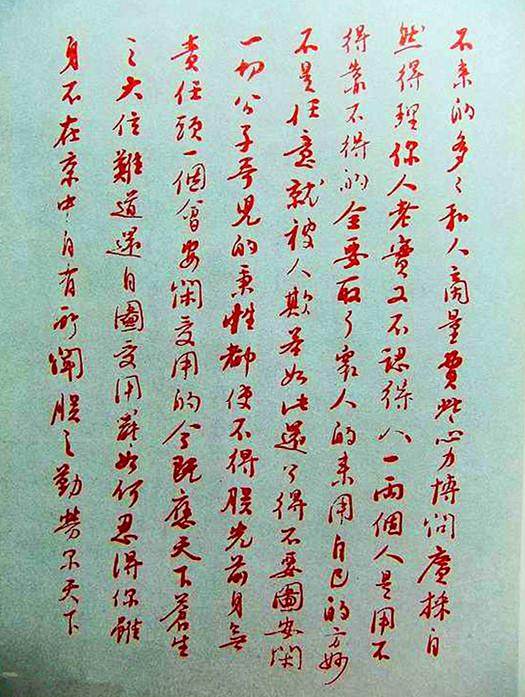 不来的多々和人商量費些心力博問廣採自
然得理你人老實又不認得人一兩個人是用不
得靠不得的全要取了衆人的来用自己的方妙
不是任意就被人欺若如此還了得不要圖安閑
一切公子哥兒的秉性都使不得朕先前身無
責任頭一個會安閑受用的今既應天下蒼生
之大位難道還自圖受用如何忍得你雖
身不在京中自有所聞朕之勤勞天下